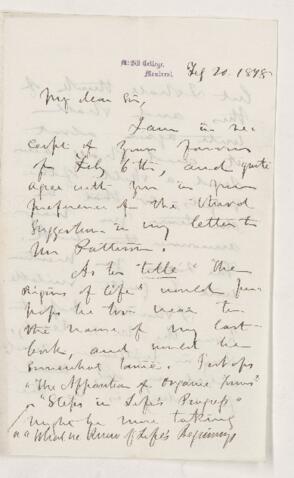 McGill College,
Montreal.
Feb 20. 1878
My dear Sir,
I am in re-
ceipt of your favour
of Feby 6th, and quite
agree with you in your
preference of the third
suggestion in my letter to
Mr Patterson.
As to title "The
Origins of Life" would per-
haps be too near to
the name of my last
book and would be
somewhat tame. Perhaps
"The Apparition of Organic Forms"
or "Steps in Life's Progress"
might be more taking
or "What we Know of Life's Beginnings